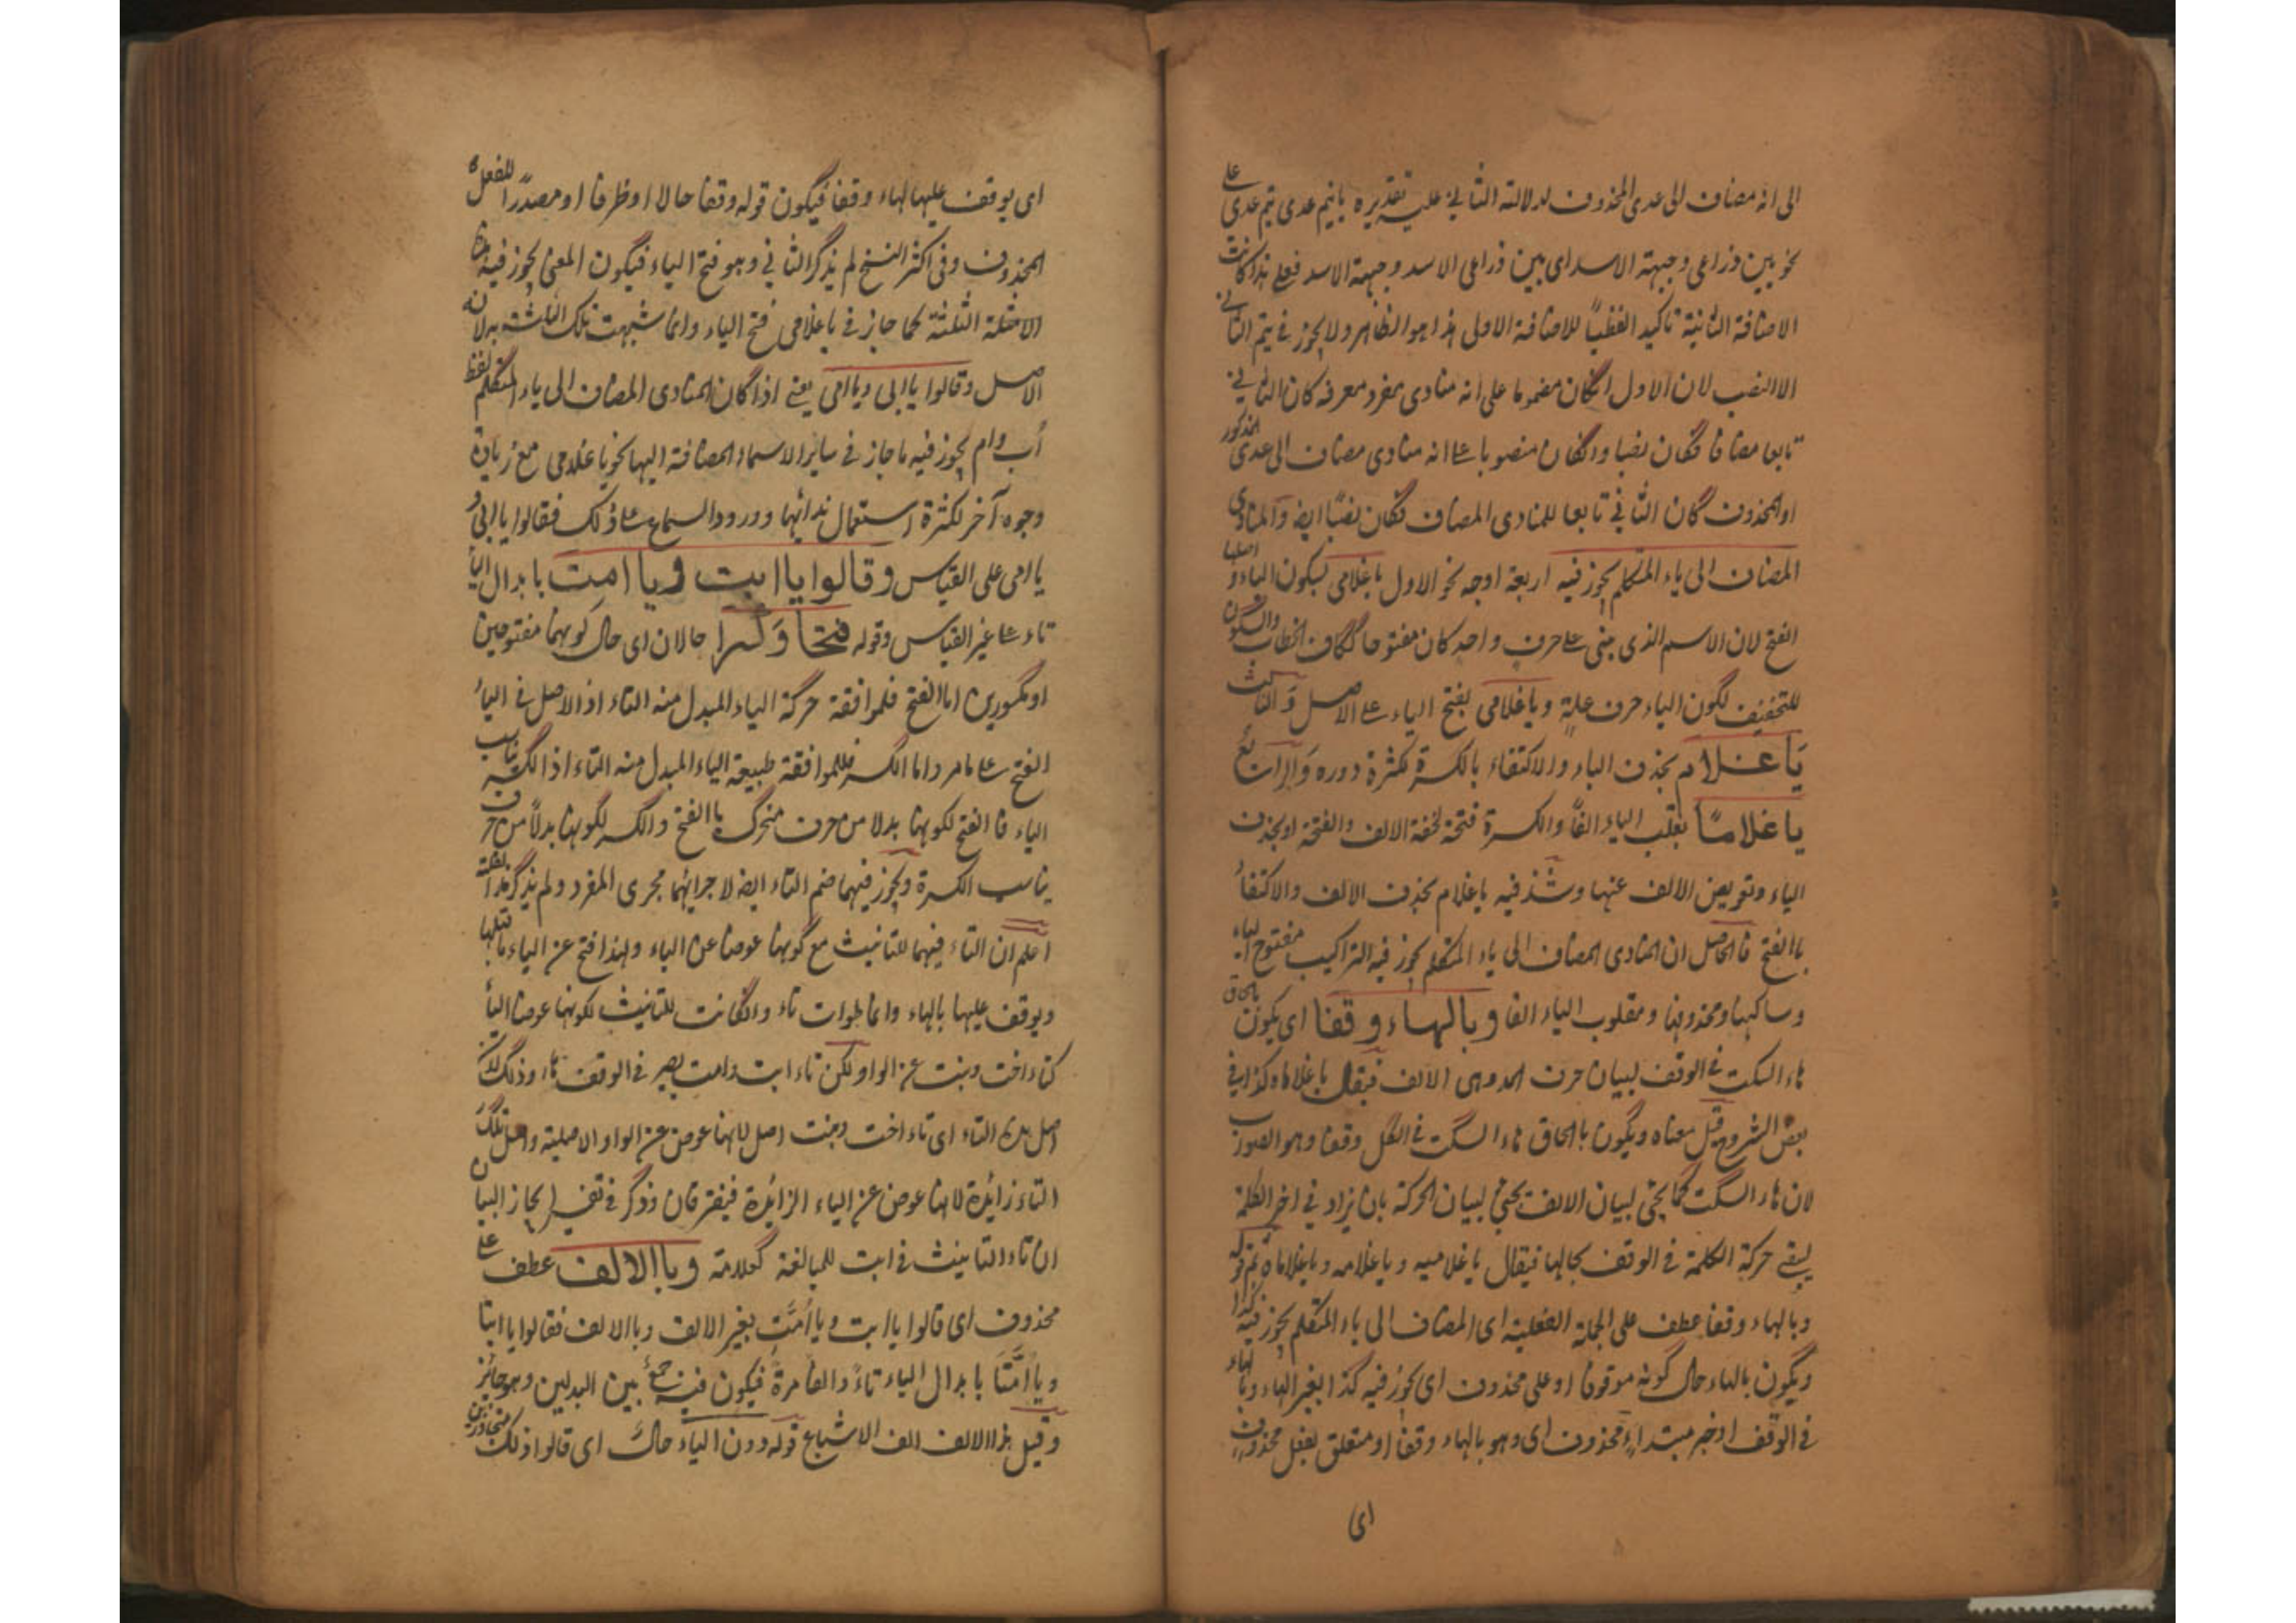 الى انه مضاف الى عدى المحذوف لدلالة الثاني عليه تقديره يا تيم عدى تيم عدى على
نحو بين ذراعى وجبهة الاسد اى بين ذراعى الاسد وجبهة الاسد فعلى هذا كانت
الاضافة الثانية تاكيد الفظيا للاضافة الاولى هذا هو الظاهر ولا يجوز في تيم الثاني
الا النصب لان الاول انكان مضموما على انه منادى مفرد معرفه كان الثاني
تابعا مضافا فكان نصبا وانكان منصوبا على انه منادى مضاف الى عدى المذكور
او المحذوف كان الثاني تابعا للمنادى المضاف فكان نصبًا ايضا والمنادى
المضاف الى ياء المتكلم يجوز فيه اربعة اوجه نحو الاول يا غلامى بسكون الياء و اصلها
الفتح لان الاسم الذى بنى على حرف واحد كان مفتوحا ككاف الخطاب والسكون
للتخفيف لكون الياء حرف علة ويا غلامى بفتح الياء على الاصل و الثالث
يَا غلام بحذف الياء والاكتفاء بالكسرة لكثرة دوره وَالرابع
يا غلامًا بقلب الياء الفًا والكسرة فتحة لخفة الالف والفتحة او بحذف
الياء وتعويض الالف عنها وشذ فيه يا غلام بحذف الالف والاكتفاء
بالفتح فالحاصل ان المنادى المضاف الى ياء المتكلم يجوز فيه التراكيب مفتوح الياء
وساكنها ومحذوفها ومقلوب الياء الفا وبالهاء وقفا اى يكون بالحاق
هاء السكت في الوقف لبيان حرف المد وهى الالف فيقال يا غلاماه كذا في
بعض الشروح قيل معناه ويكون بالحاق هاء السكت في الكل وقفا وهو الصواب
لان هاء السكت كما يجئ لبيان الالف يجئ لبيان الحركة بان يزاد في اخر الكلمة
ليبقى حركة الكلمة في الوقف بحالها فيقال يا غلاميه ويا غلامه ويا غلاماه ثم قوله
وبالهاء وقفا عطف على الجملة الفعلية اى المضاف الى ياء المتكلم يجوز فيه كذا
ويكون بالهاء حال كونه موقوفا او على محذوف اى يجوز فيه كذا بغير الهاء وبالهاء
في الوقف او خبر مبتداء محذوف اى وهو بالهاء وقفا او متعلق بفعل محذوف
اى
اى يوقف عليها بالهاء وقفا فيكون قوله وقفا حالا او ظرفا او مصدرًا للفعل
المحذوف وفى اكثر النسخ لم يذكر الثاني وهو فتح الياء فيكون المعنى يجوز فيه هذه
الامثلة الثلثة كما جاز في يا غلامى فتح الياء وانما شبهت تلك الثلثة به لانه
الاصل وقالوا يا ابى ويا امى يعنى اذا كان المنادى المضاف الى ياء المتكلم لفظ
أب وام يجوز فيه ما جاز في ساير الاسماء المضافة اليها نحو يا غلامى مع زيادة
وجوه آخر لكثرة استعمال ندائهما وورود السماع على ذلك فقالوا يا ابى و
يا امى على القياس وقالوا يا ابت و يا امت بابدال الياء
تاء على غير القياس وقوله فتحا وَكسرا حالان اى حال كونهما مفتوحين
او مكسورين اما الفتح فلموافقة حركة الياء المبدل منه التاء اذ الاصل في الياء
الفتح على ما مر واما الكسر فللموافقة طبيعة الياء المبدل منه التاء اذ الكسر يناسب
الياء فالفتح لكونها بدلا من حرف متحرك بالفتح والكسر لكونها بدلًا من حرف
يناسب الكسرة ويجوز فيهما ضم التاء ايضا لاجرائهما مجرى المفرد ولم يذكر هذا لقلته
اعلم ان التاء فيهما للتانيث مع كونها عوضا عن الياء ولهذا فتح عن الياء ما قبلها
ويوقف عليها بالهاء وانما طولت تاء وانكانت للتانيث لكونها عوضا الياء
كتاء اخت وبنت عن الواو لكن تاء ابت وامت يصير في الوقف هاء وذلك لان
اصل هذه التاء اى تاء اخت وبنت اصل لانها عوض عن الواو الاصلية واصل تلك
التاء زائدة لانها عوض عن الياء الزائدة فيفترقان وذكر في تفسير ايجاز البيان
ان تاء التانيث في ابت للمبالغة كعلامة وبالالف عطف على
محذوف اى قالوا يا ابت ويا أمَّت بغير الالف وبالالف فقالوا يا ابتا
ويا أمَّتَا بابدال الياء تاءً والفا مرة فيكون فيه جمعٌ بين البدلين وهو جائز
وقيل هذا الالف الف الاشباع قوله دون الياء حال اى قالوا ذلك متجاوزين